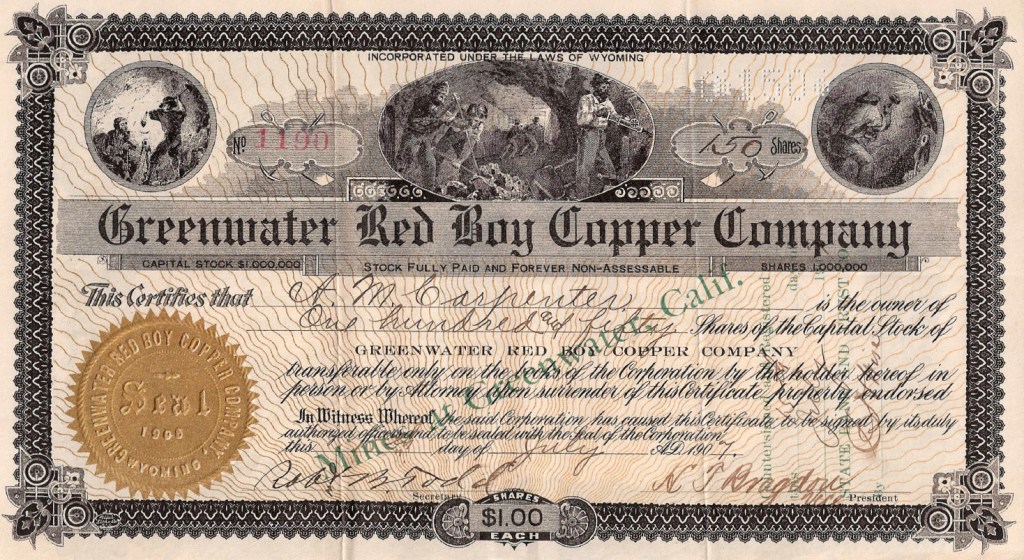 INCORPORATED UNDER THE LAWS OF WYOMING
No 1190
150 Shares
Greenwater Red Boy Copper Company
CAPITAL STOCK $1,000,000
STOCK FULLY PAID AND FOREVER NON-ASSESSABLE
SHARES 1,000,000
This Certifies that A. M. Carpenter is the owner of
One hundred and fifty Shares of the Capital Stock of
GREENWATER RED BOY COPPER COMPANY
transferable only on the books of the Corporation by the holder hereof in
person or by Attorney upon surrender of this Certificate properly endorsed
In Witness Whereof, the said Corporation has caused this Certificate to be signed by its duly
authorized officers and to be sealed with the Seal of the Corporation
this day of July A.D. 1907.
Mines at Greenwater, Calif.
GREENWATER RED BOY COPPER COMPANY,
Seal
1906
Secretary
Vice President
SHARES
$1.00
EACH